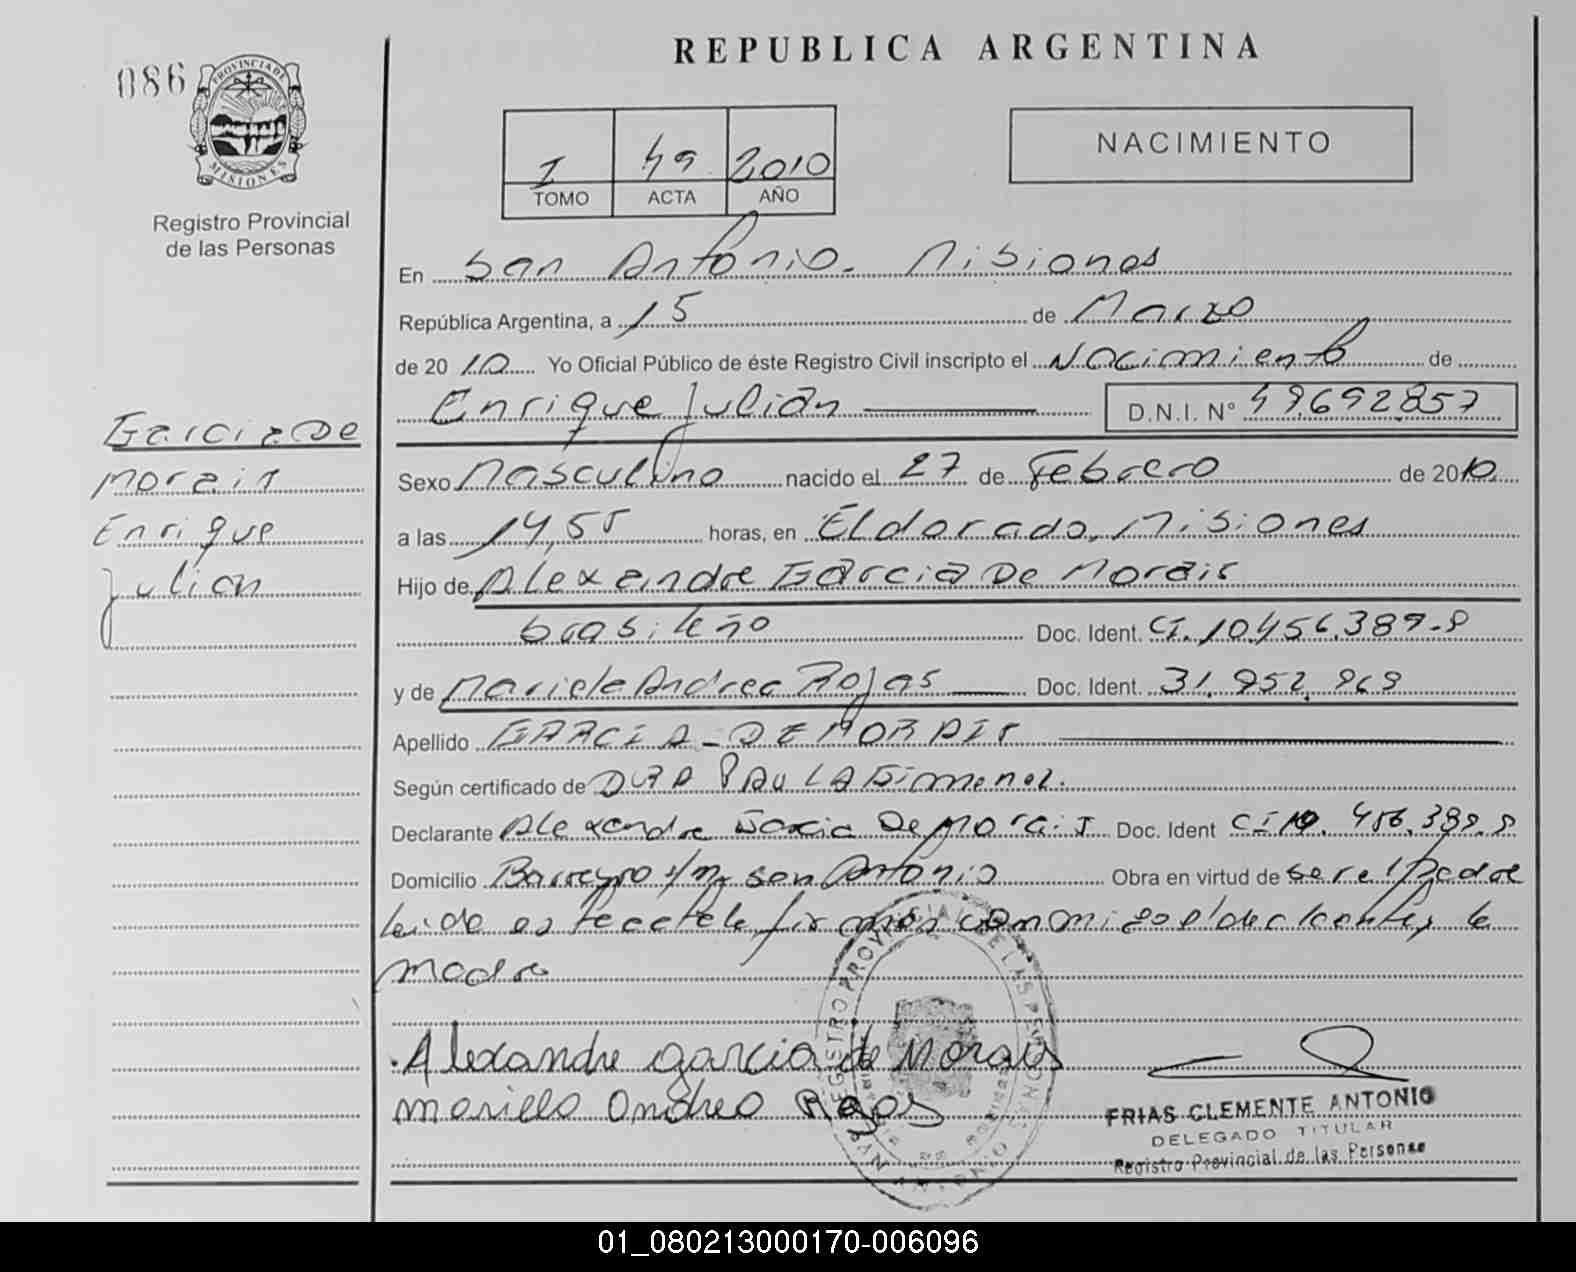 REPUBLICA ARGENTINA
086
PROVINCIA DE
MISIONES
Registro Provincial
de las Personas
I 49 2010
TOMO ACTA AÑO
NACIMIENTO
En San Antonio. Misiones
República Argentina, a 15 de Marzo
de 2010 Yo Oficial Público de éste Registro Civil inscripto el Nacimiento de
Enrique Julián D.N.I. Nº 49.692.857
Garcia De
Morais
Enrique
Julian
Sexo Masculino nacido el 27 de Febrero de 2010
a las 14,55 horas, en Eldorado, Misiones
Hijo de Alexandre Garcia De Morais
brasileño Doc. Ident. CI. 10.456.389-8
y de Mariela Andrea Rojas Doc. Ident. 31.952.969
Apellido GARCIA - DE MORAIS
Según certificado de DRA PAULA Gimenez.
Declarante Alexandre Garcia De Morais Doc. Ident CI 10.456.389.8
Domicilio Barreyro s/n San Antonio Obra en virtud de ser el Padre
leida es acta la firman conmigo el la
madre
Alexandre garcia de Morais
Mariela Andrea Rojas
REGISTRO PROVINCIAL DE LAS PERSONAS
FRIAS CLEMENTE ANTONIO
DELEGADO TITULAR
Registro Provincial de las Personas
01_080213000170-006096